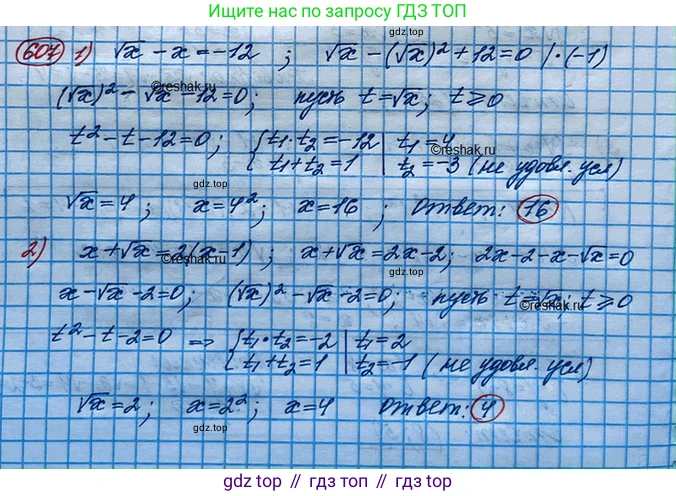 Ищите нас по запросу ГДЗ ТОП
gdz.top
607 1) √x - x = -12 ; √x - (√x)² + 12 = 0 | · (-1)
(√x)² - √x - 12 = 0; пусть t = √x; t ⩾ 0
©reshak.ru
t² - t - 12 = 0; { t₁ · t₂ = -12 | t₁ = 4
©reshak.ru
t₁ + t₂ = 1 | t₂ = -3 (не удовл. усл)
gdz.top
√x = 4 ; x = 4² ; x = 16 ; Ответ: 16
2) x + √x = 2(x - 1) ; x + √x = 2x - 2; 2x - 2 - x - √x = 0
©reshak.ru
gdz.top
x - √x - 2 = 0; (√x)² - √x - 2 = 0; пусть t = √x; t ⩾ 0
©reshak.ru
t² - t - 2 = 0 => { t₁ · t₂ = -2 | t₁ = 2
t₁ + t₂ = 1 | t₂ = -1 (не удовл. усл)
√x = 2; x = 2² ; x = 4 Ответ: 4
gdz.top
gdz.top // гдз топ // gdz.top